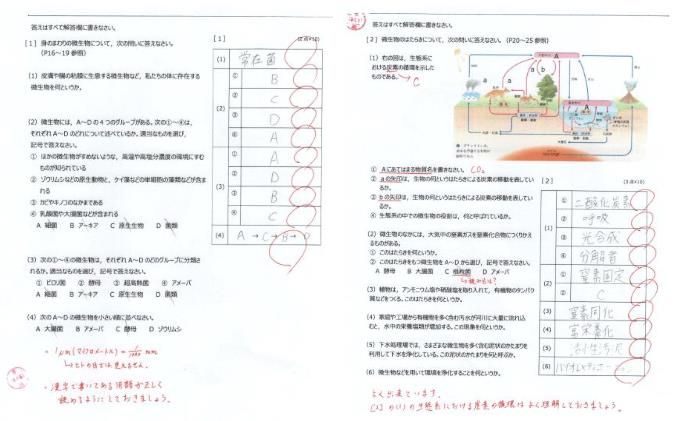 答えはすべて解答欄に書きなさい。
[1] 身のまわりの微生物について、次の問いに答えなさい。
(P16～19 参照)
(1) 皮膚や腸の粘膜に生息する微生物など、私たちの体に存在する
微生物を何というか。
(2) 微生物には、A～Dの4つのグループがある。次の①～④は、
それぞれA～Dのどれについて述べているか。適当なものを選び、
記号で答えなさい。
① ほかの微生物がすめないような、高温や高塩分濃度の環境にすむ
ものが知られている
② ゾウリムシなどの原生動物と、ケイ藻などの単細胞の藻類などが含ま
れる
③ カビやキノコのなかまである
④ 乳酸菌や大腸菌などが含まれる
A 細菌 B アーキア C 原生生物 D 菌類
(3) 次の①～④の微生物は、それぞれA～Dのどのグループに分類さ
れるか。適当なものを選び、記号で答えなさい。
① ピロリ菌 ② 酵母 ③ 超高熱菌 ④ アメーバ
A 細菌 B アーキア C 原生生物 D 菌類
(4) 次のA～Dの微生物を小さい順に並べなさい。
A 大腸菌 B アメーバ C 酵母 D ゾウリムシ
・1μm(マイクロメートル)=1/1000 mm
→ヒトの目では見えません。
・漢字で書いてある用語が正しく
読めるようにしておきましょう。
[1]
(1) 常在菌
(2) ① B
② C
③ D
④ A
(3) ① A
② D
③ B
④ C
(4) A → C → B → D
答えはすべて解答欄に書きなさい。
[2] 微生物のはたらきについて、次の問いに答えなさい。(P20～25 参照)
(1) 右の図は、生態系に
おける炭素の循環を示した
ものである。
→C
① Aにあてはまる物質名を書きなさい。 CO₂
② aの矢印は、生物の何というはたらきによる炭素の移動を表してい
るか。
③ bの矢印は、生物の何というはたらきによる炭素の移動を表してい
るか。
④ 生態系の中での微生物の役割は、何と呼ばれているか。
(2) 微生物のなかには、大気中の窒素ガスを窒素化合物につくりかえ
るものがある。
① このはたらきを何というか。
② このはたらきをもつ微生物をA～Dから選び、記号で答えなさい。
A 酵母 B 大腸菌 C 根粒菌 D アメーバ
(3) 植物は、アンモニウム塩や硝酸塩を取り入れて、有機物のタンパク
質などをつくる。このはたらきを何というか。
(4) 家庭や工場から有機物を多く含む汚水が河川に大量に流れ込
むと、水中の栄養塩類が増加する。この現象を何というか。
(5) 下水処理場では、さまざまな微生物を多く含む泥状のかたまりを
利用して下水を浄化している。この泥状のかたまりを何と呼ぶか。
(6) 微生物などを用いて環境を浄化することを何というか。
[2]
(1) ① 二酸化炭素
② 呼吸
③ 光合成
④ 分解者
(2) ① 窒素固定
② C
(3) 窒素同化
(4) 富栄養化
(5) 活性汚泥
(6) バイオレメディエーション
よく出来ています。
(2)の(1)の生態系における炭素の循環はよく理解しておきましょう。